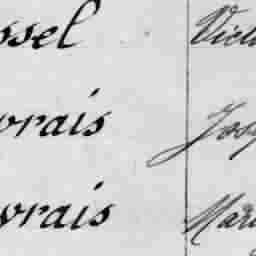 ssel Vict
vrais Jos
vrais Mari